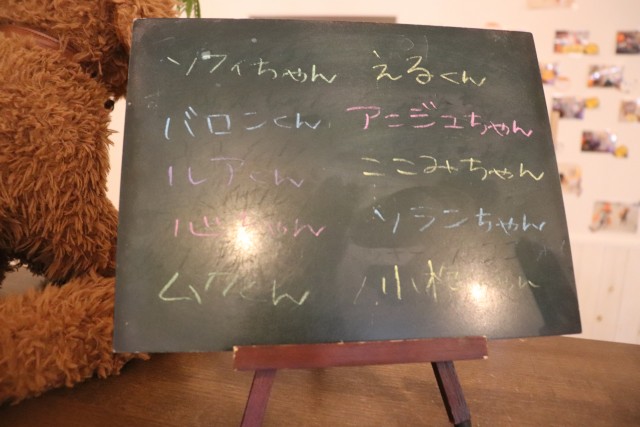 ソフィちゃん えるくん
バロンくん アンジュちゃん
ルアくん ここみちゃん
心ちゃん ソランちゃん
ムクくん 小